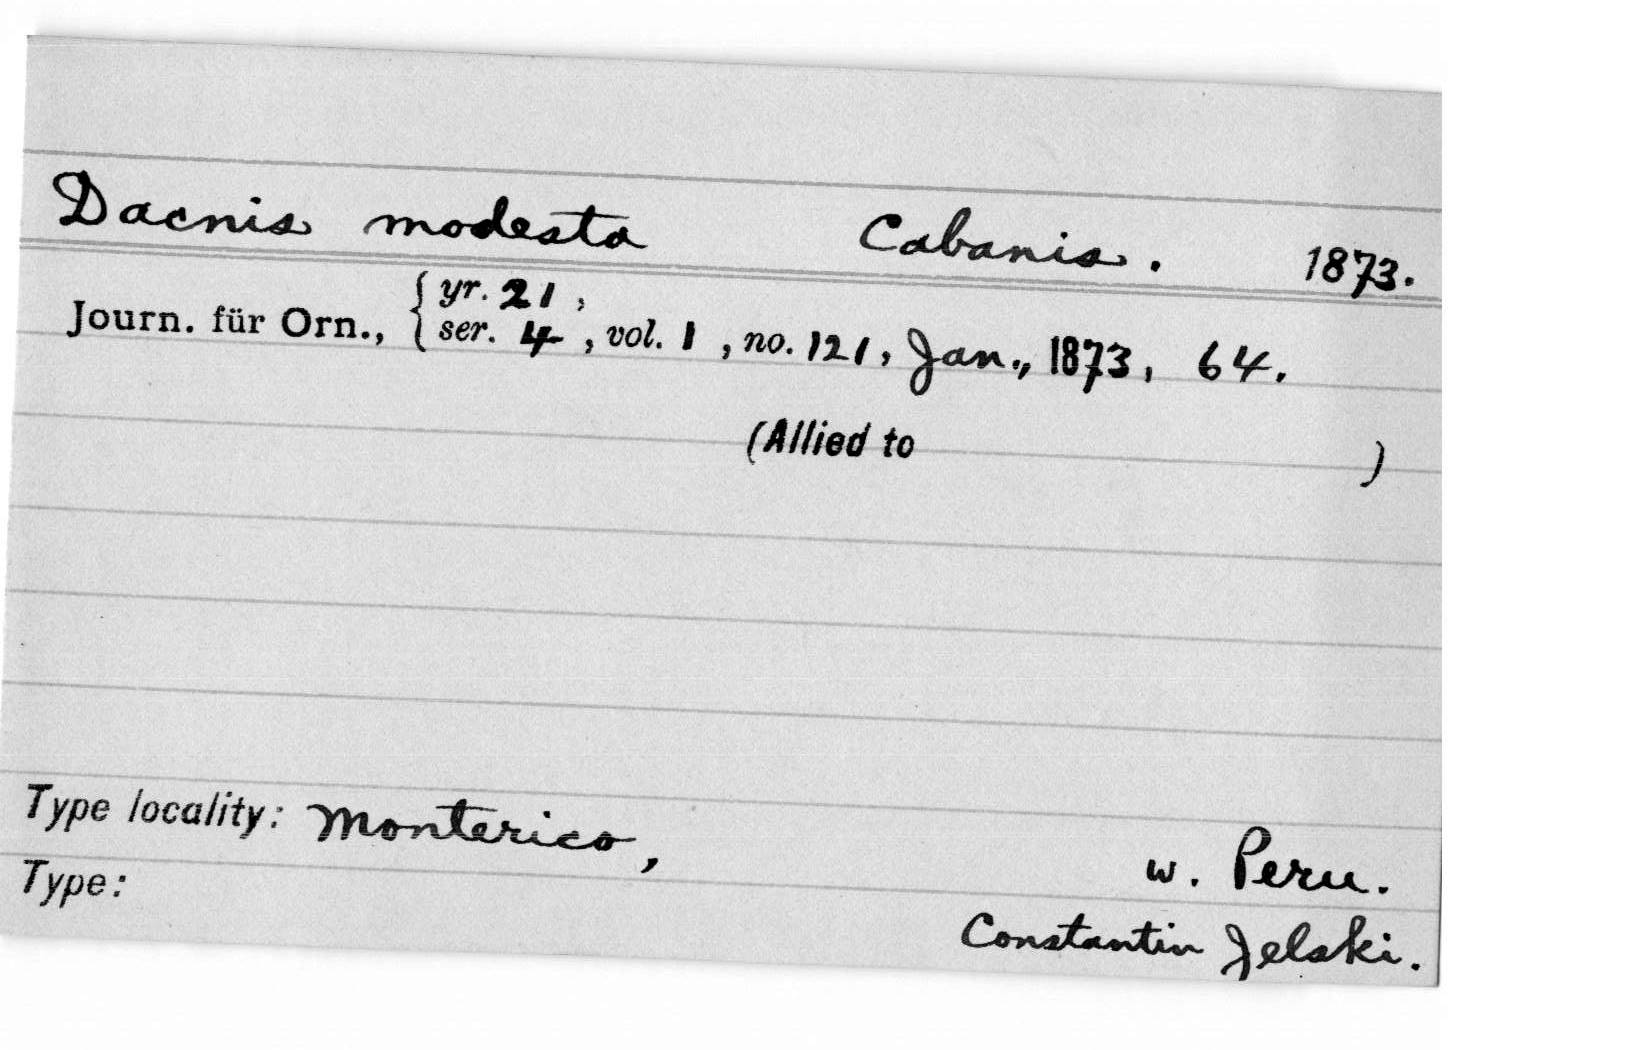 Dacnis modesta Cabanis. 1873.
Journ. für Orn., { yr. 21,
ser. 4, vol. 1, no. 121, Jan., 1873, 64.
(Allied to )
Type locality: Monterico, w. Peru.
Type:
Constantin Jelski.